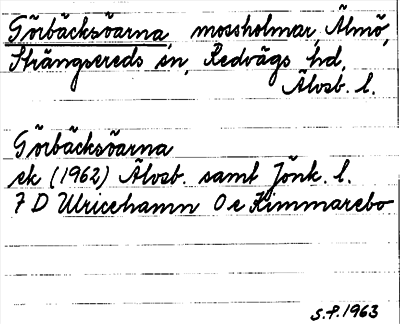 Görbäcksöarna, mossholmar, Älmö,
Strängsereds sn, Redvägs hd,
Älvsb. l.
Görbäcksöarna
ek (1962) Älvsb. samt Jönk. l.
7 D Ulricehamn 0 e Kimmarebo
S.F. 1963